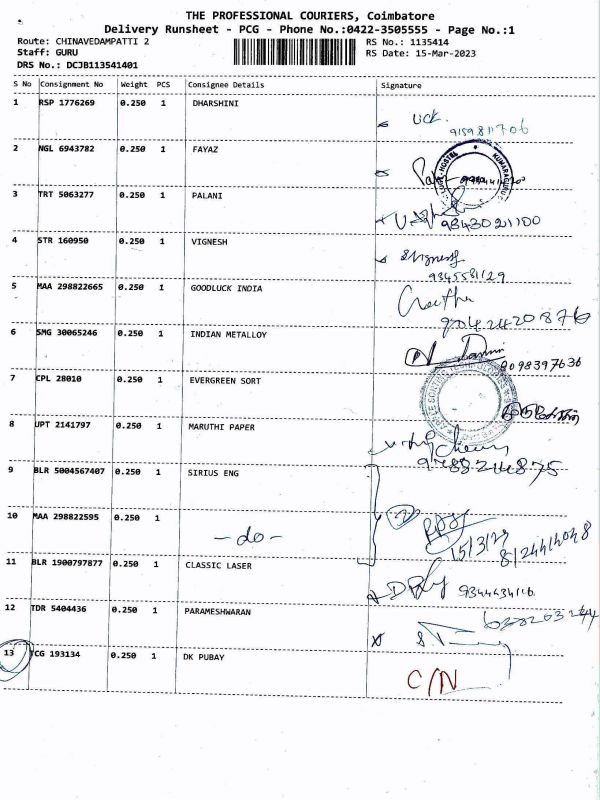 THE PROFESSIONAL COURIERS, Coimbatore
Delivery Runsheet - PCG - Phone No.:0422-3505555 - Page No.:1
Route: CHINAVEDAMPATTI 2 RS No.: 1135414
Staff: GURU RS Date: 15-Mar-2023
DRS No.: DCJB113541401
S No Consignment No Weight PCS Consignee Details Signature
1 RSP 1776269 0.250 1 DHARSHINI
2 NGL 6943782 0.250 1 FAYAZ
3 TRT 5063277 0.250 1 PALANI
9843021100
4 STR 160950 0.250 1 VIGNESH
9345581129
5 MAA 298822665 0.250 1 GOODLUCK INDIA
9042420876
6 SMG 30065246 0.250 1 INDIAN METALLOY
9098397636
7 CPL 28010 0.250 1 EVERGREEN SORT
8 UPT 2141797 0.250 1 MARUTHI PAPER
9788214875
9 BLR 5004567407 0.250 1 SIRIUS ENG
10 MAA 298822595 0.250 1
-do-
15/3/23
11 BLR 1900797877 0.250 1 CLASSIC LASER
12 TDR 5404436 0.250 1 PARAMESHWARAN
13 TCG 193134 0.250 1 DK PUBAY
C/N